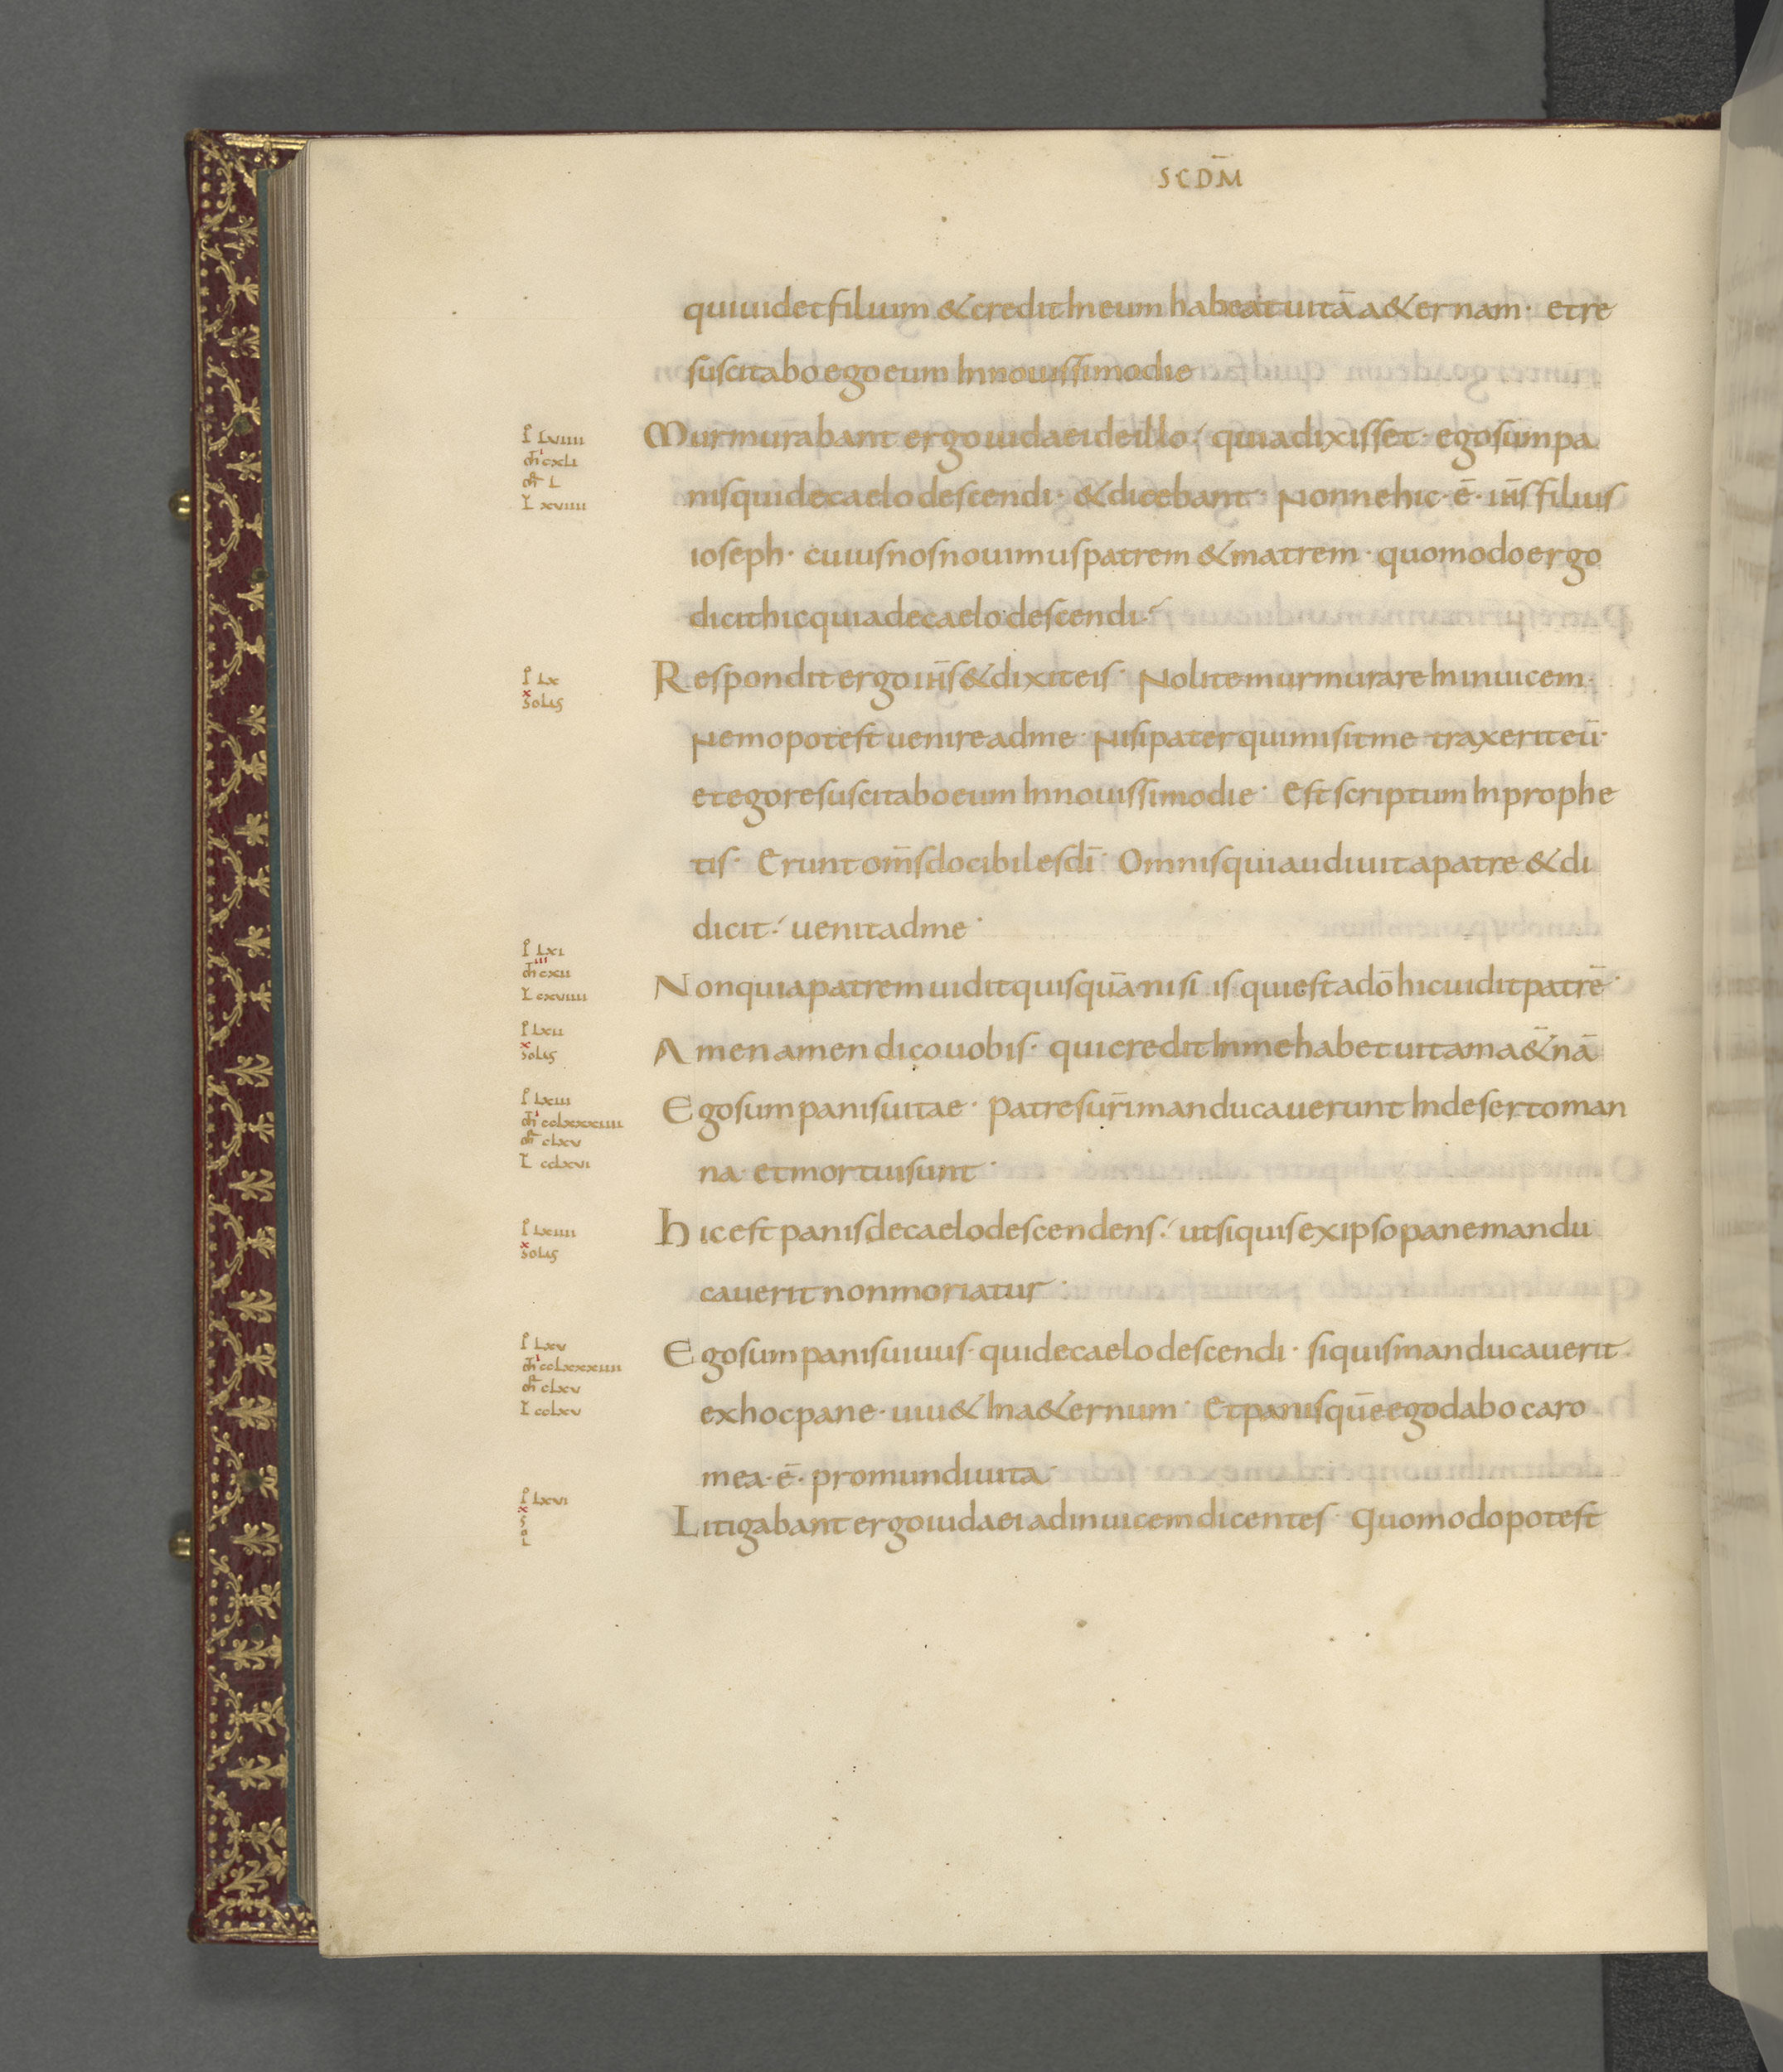 SCDM̄
qui uidet filium & credit in eum habeat uitā a&ernam · et re
suscitabo ego eum in nouissimo die
ꝑ LVIIII
Murmurabant ergo iudaei de illo · quia dixisset · ego sum pa
m̄ CXLI
mr̄ L
L XVIIII
nis qui de caelo descendi · & dicebant · Nonne hic · ē · ih̄s filius
ioseph · cuius nos nouimus patrem & matrem · quomodo ergo
dicit hic quia de caelo descendi ·
ꝑ LX
Respondit ergo ih̄s & dixit eis · Nolite murmurare in inuicem ·
solus
Nemo potest uenire ad me · Nisi pater qui misit me traxerit eū ·
et ego resuscitabo eum in nouissimo die · Est scriptum in prophe
tis · Erunt om̄s docibiles dī · Omnis qui audiuit a patre & di
dicit · uenit ad me ·
ꝑ LXI
m̄ CXII
L CXVIIII
Non quia patrem uidit quisquā nisi is qui est a dō hic uidit patrē ·
ꝑ LXII
solus
Amen amen dico uobis · qui credit in me habet uitam a&̄nā
ꝑ LXIII
Ego sum panis uitae · Patres ur̄i manducauerunt in deserto man
m̄ CCLXXXIIII
mr̄ CLXV
L CCLXVI
na · et mortui sunt ·
ꝑ LXIIII
Hic est panis de caelo descendens · ut si quis ex ipso pane mandu
solus
cauerit non moriatur ·
ꝑ LXV
Ego sum panis uiuus · qui de caelo descendi · si quis manducauerit
m̄ CCLXXXIIII
mr̄ CLXV
L CCLXV
ex hoc pane · uiu& in a&ernum · Et panis quē ego dabo caro
mea · ē · pro mundi uita ·
ꝑ LXVI
sol
Litigabant ergo iudaei ad inuicem dicentes · Quomodo potest